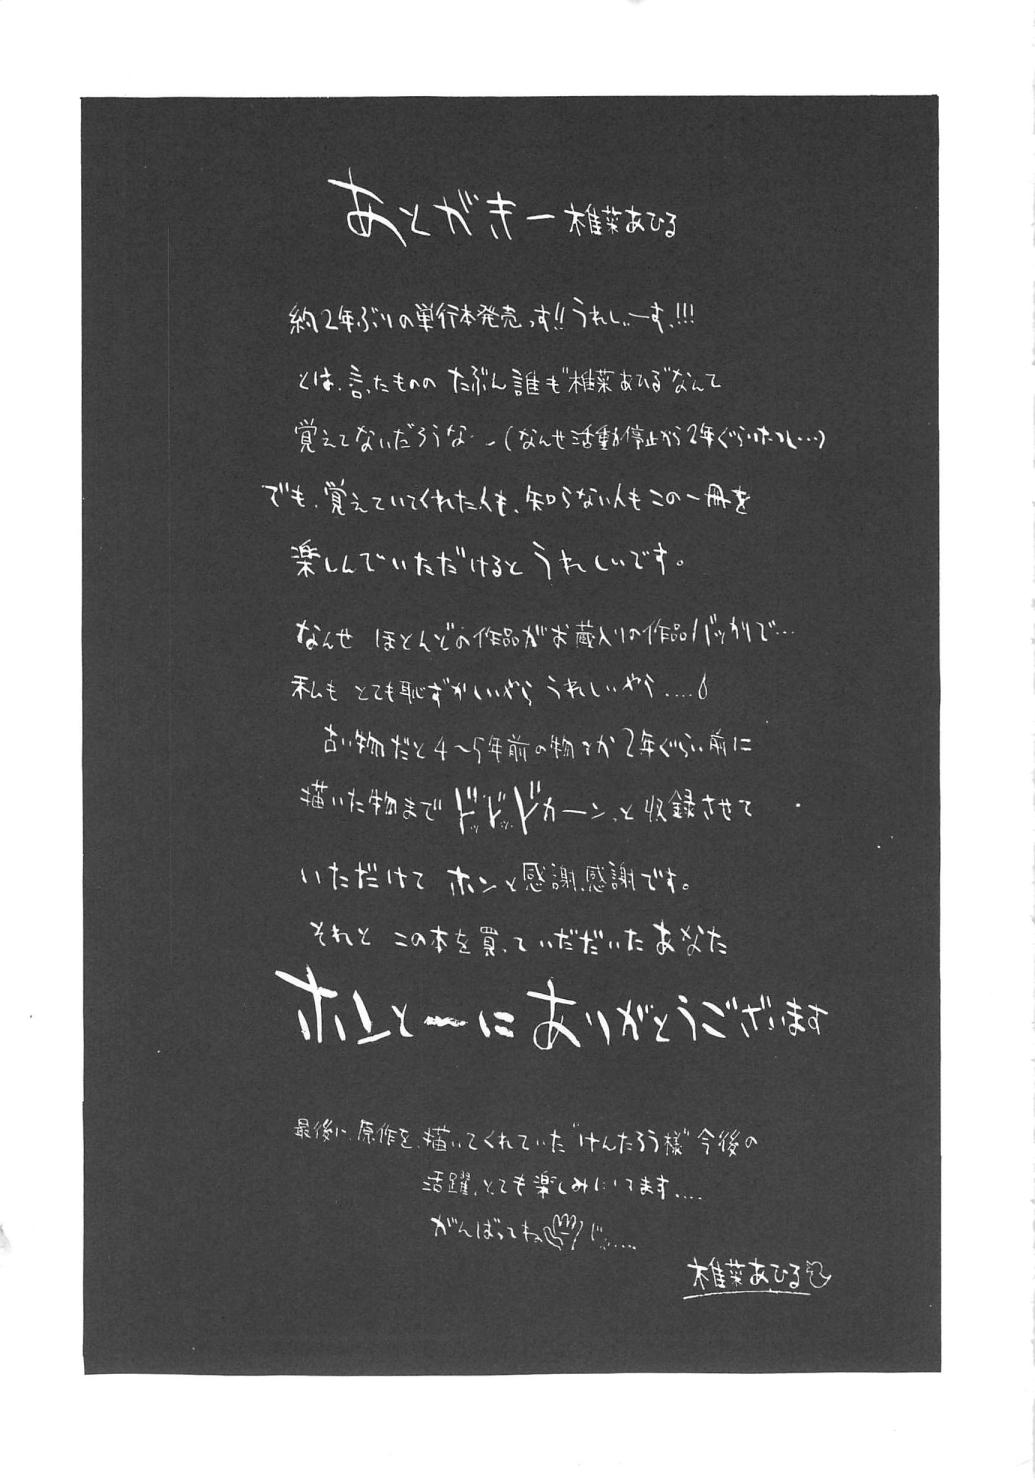 あとがきー 椎菜あひる
約2年ぶりの単行本発売っす!!うれしぃーす、!!!
とは、言ったものの たぶん誰も"椎菜あひる"なんて
覚えてないだろうな…(なんせ活動停止から2年ぐらいたつし…)
でも、覚えていてくれた人も、知らない人もこの一冊を
楽しんでいただけると うれしいです。
なんせ ほとんどの作品がお蔵入りの作品バッカリで…
私も とても恥ずかしいやら うれしいやら….
古い物だと4〜5年前の物とか2年ぐらい前に
描いた物まで ドッドッドカーン、と 収録させて
いただけて ホンと感謝、感謝です。
それと この本を買っていだだいた あなた
ホンとーに ありがとうございます
最後に、原作を、描いてくれていた"けんたろう様"今後の
活躍、とても楽しみにしてます....
がんばってね じゃ.....
椎菜あひる